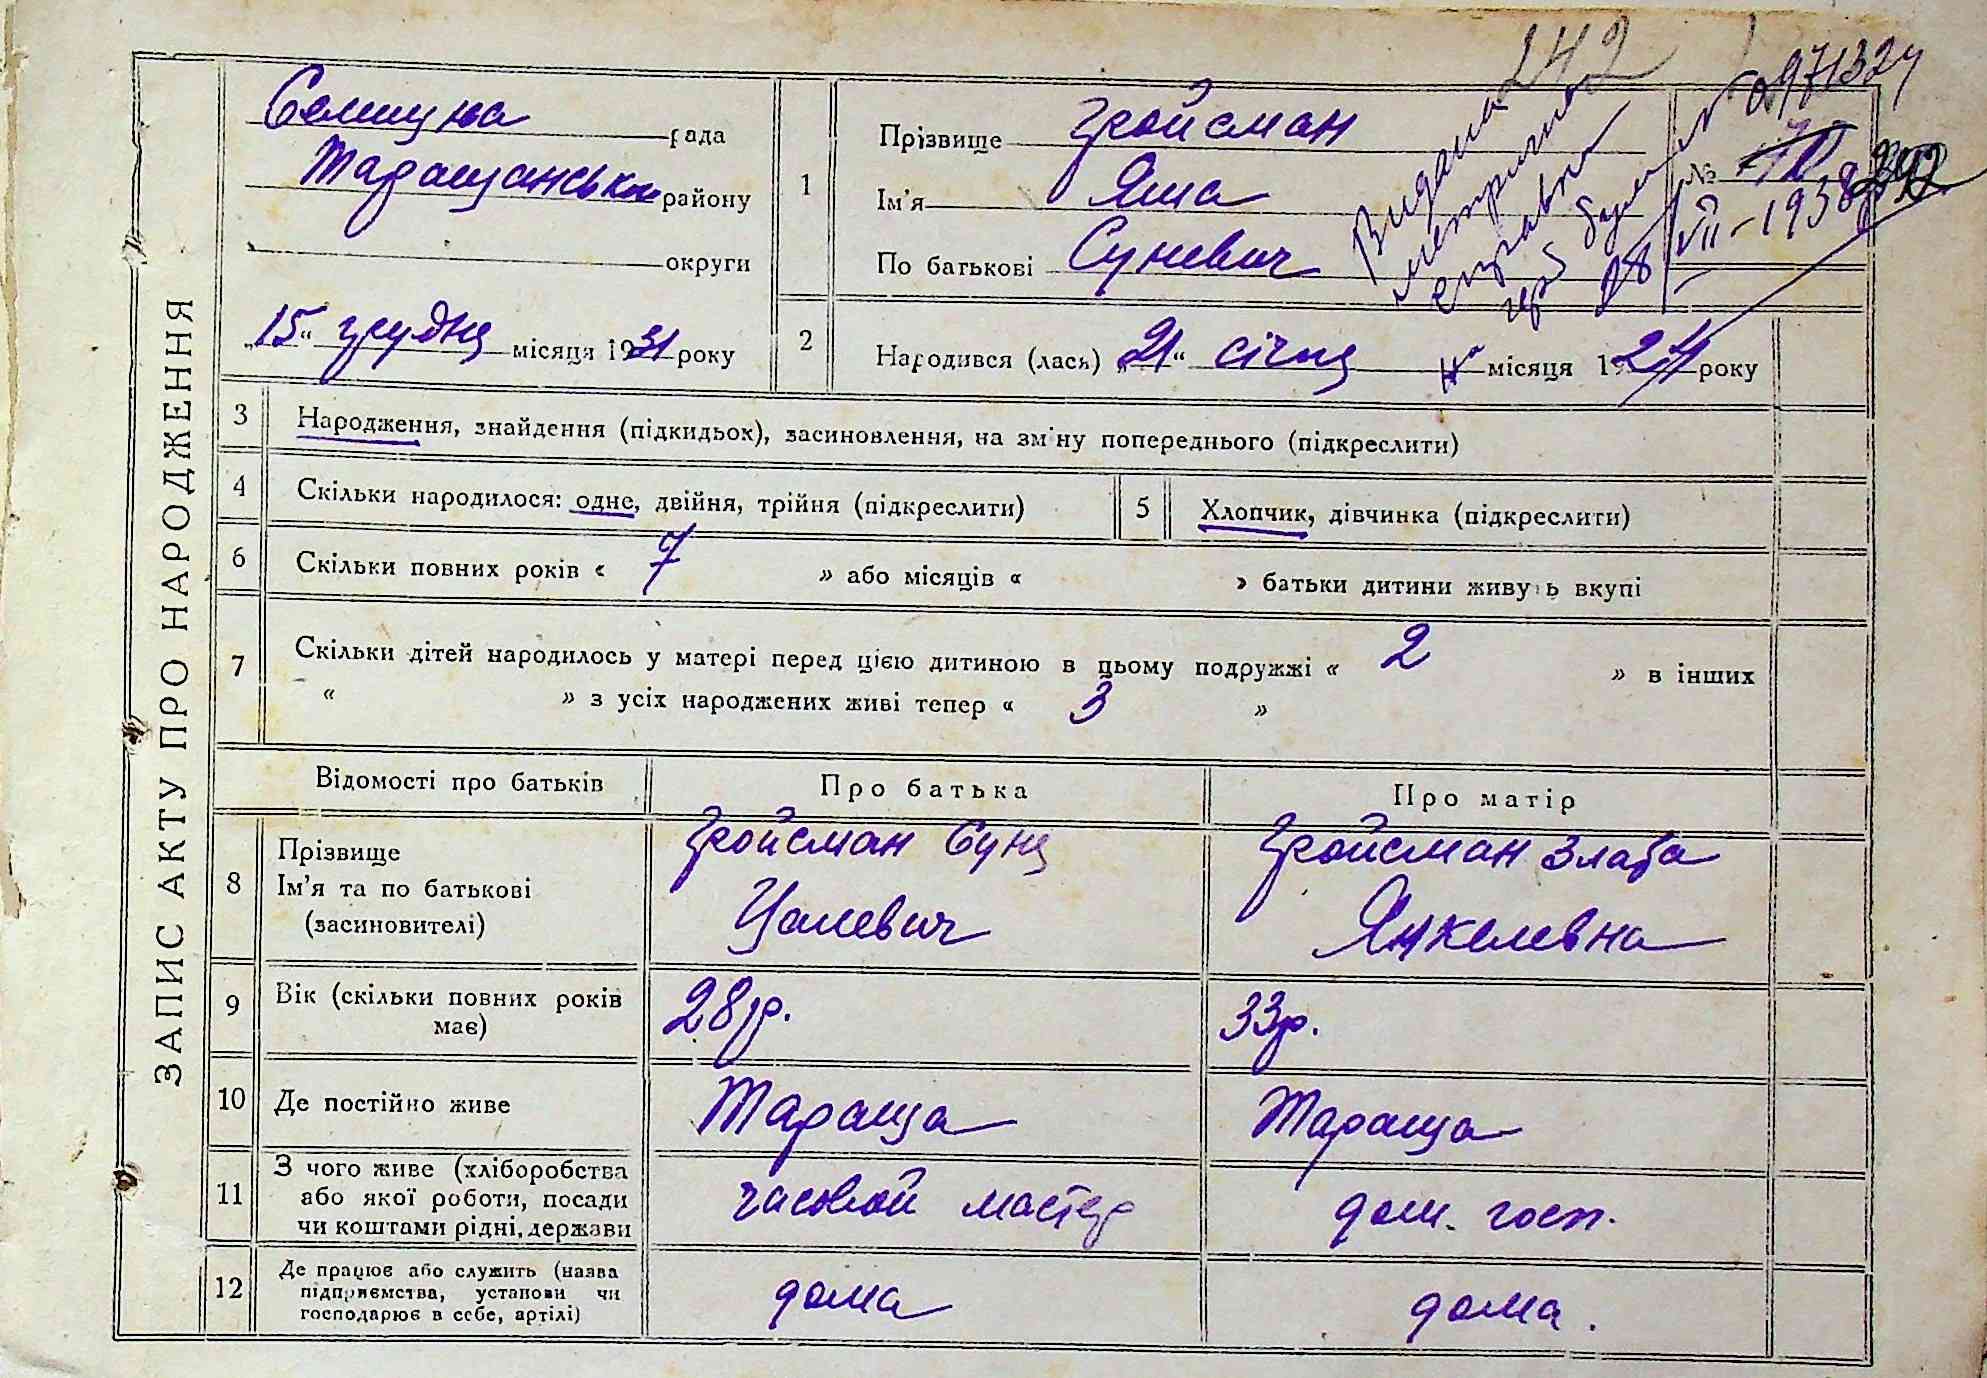 242
971324
ЗАПИС АКТУ ПРО НАРОДЖЕННЯ
Селищна рада
Таращанського району
округи
„15“ грудня місяця 1931 року
1
Прізвище Гройсман
Ім'я Яша
По батькові Суневич
Видана
метрична
справка
28/VII-1938
№ 242
2
Народився (лась) „21“ січня місяця 1924 року
3
Народження, знайдення (підкидьок), засиновлення, на зміну попереднього (підкреслити)
4
Скільки народилося: одне, двійня, трійня (підкреслити)
5
Хлопчик, дівчинка (підкреслити)
6
Скільки повних років « 7 » або місяців « » батьки дитини живуть вкупі
7
Скільки дітей народилось у матері перед цією дитиною в цьому подружжі « 2 » в інших
« » з усіх народжених живі тепер « 3 »
Відомості про батьків
Про батька
Про матір
8
Прізвище
Ім'я та по батькові
(засиновителі)
Гройсман Суня
Цалевич
Гройсман Злата
Янкелевна
9
Вік (скільки повних років
має)
28 р.
33 р.
10
Де постійно живе
Тараща
Тараща
11
З чого живе (хліборобства
або якої роботи, посади
чи коштами рідні, держави
часовой мастер
дом. госп.
12
Де працює або служить (назва
підприємства, установи чи
господарює в себе, артілі)
дома
дома.